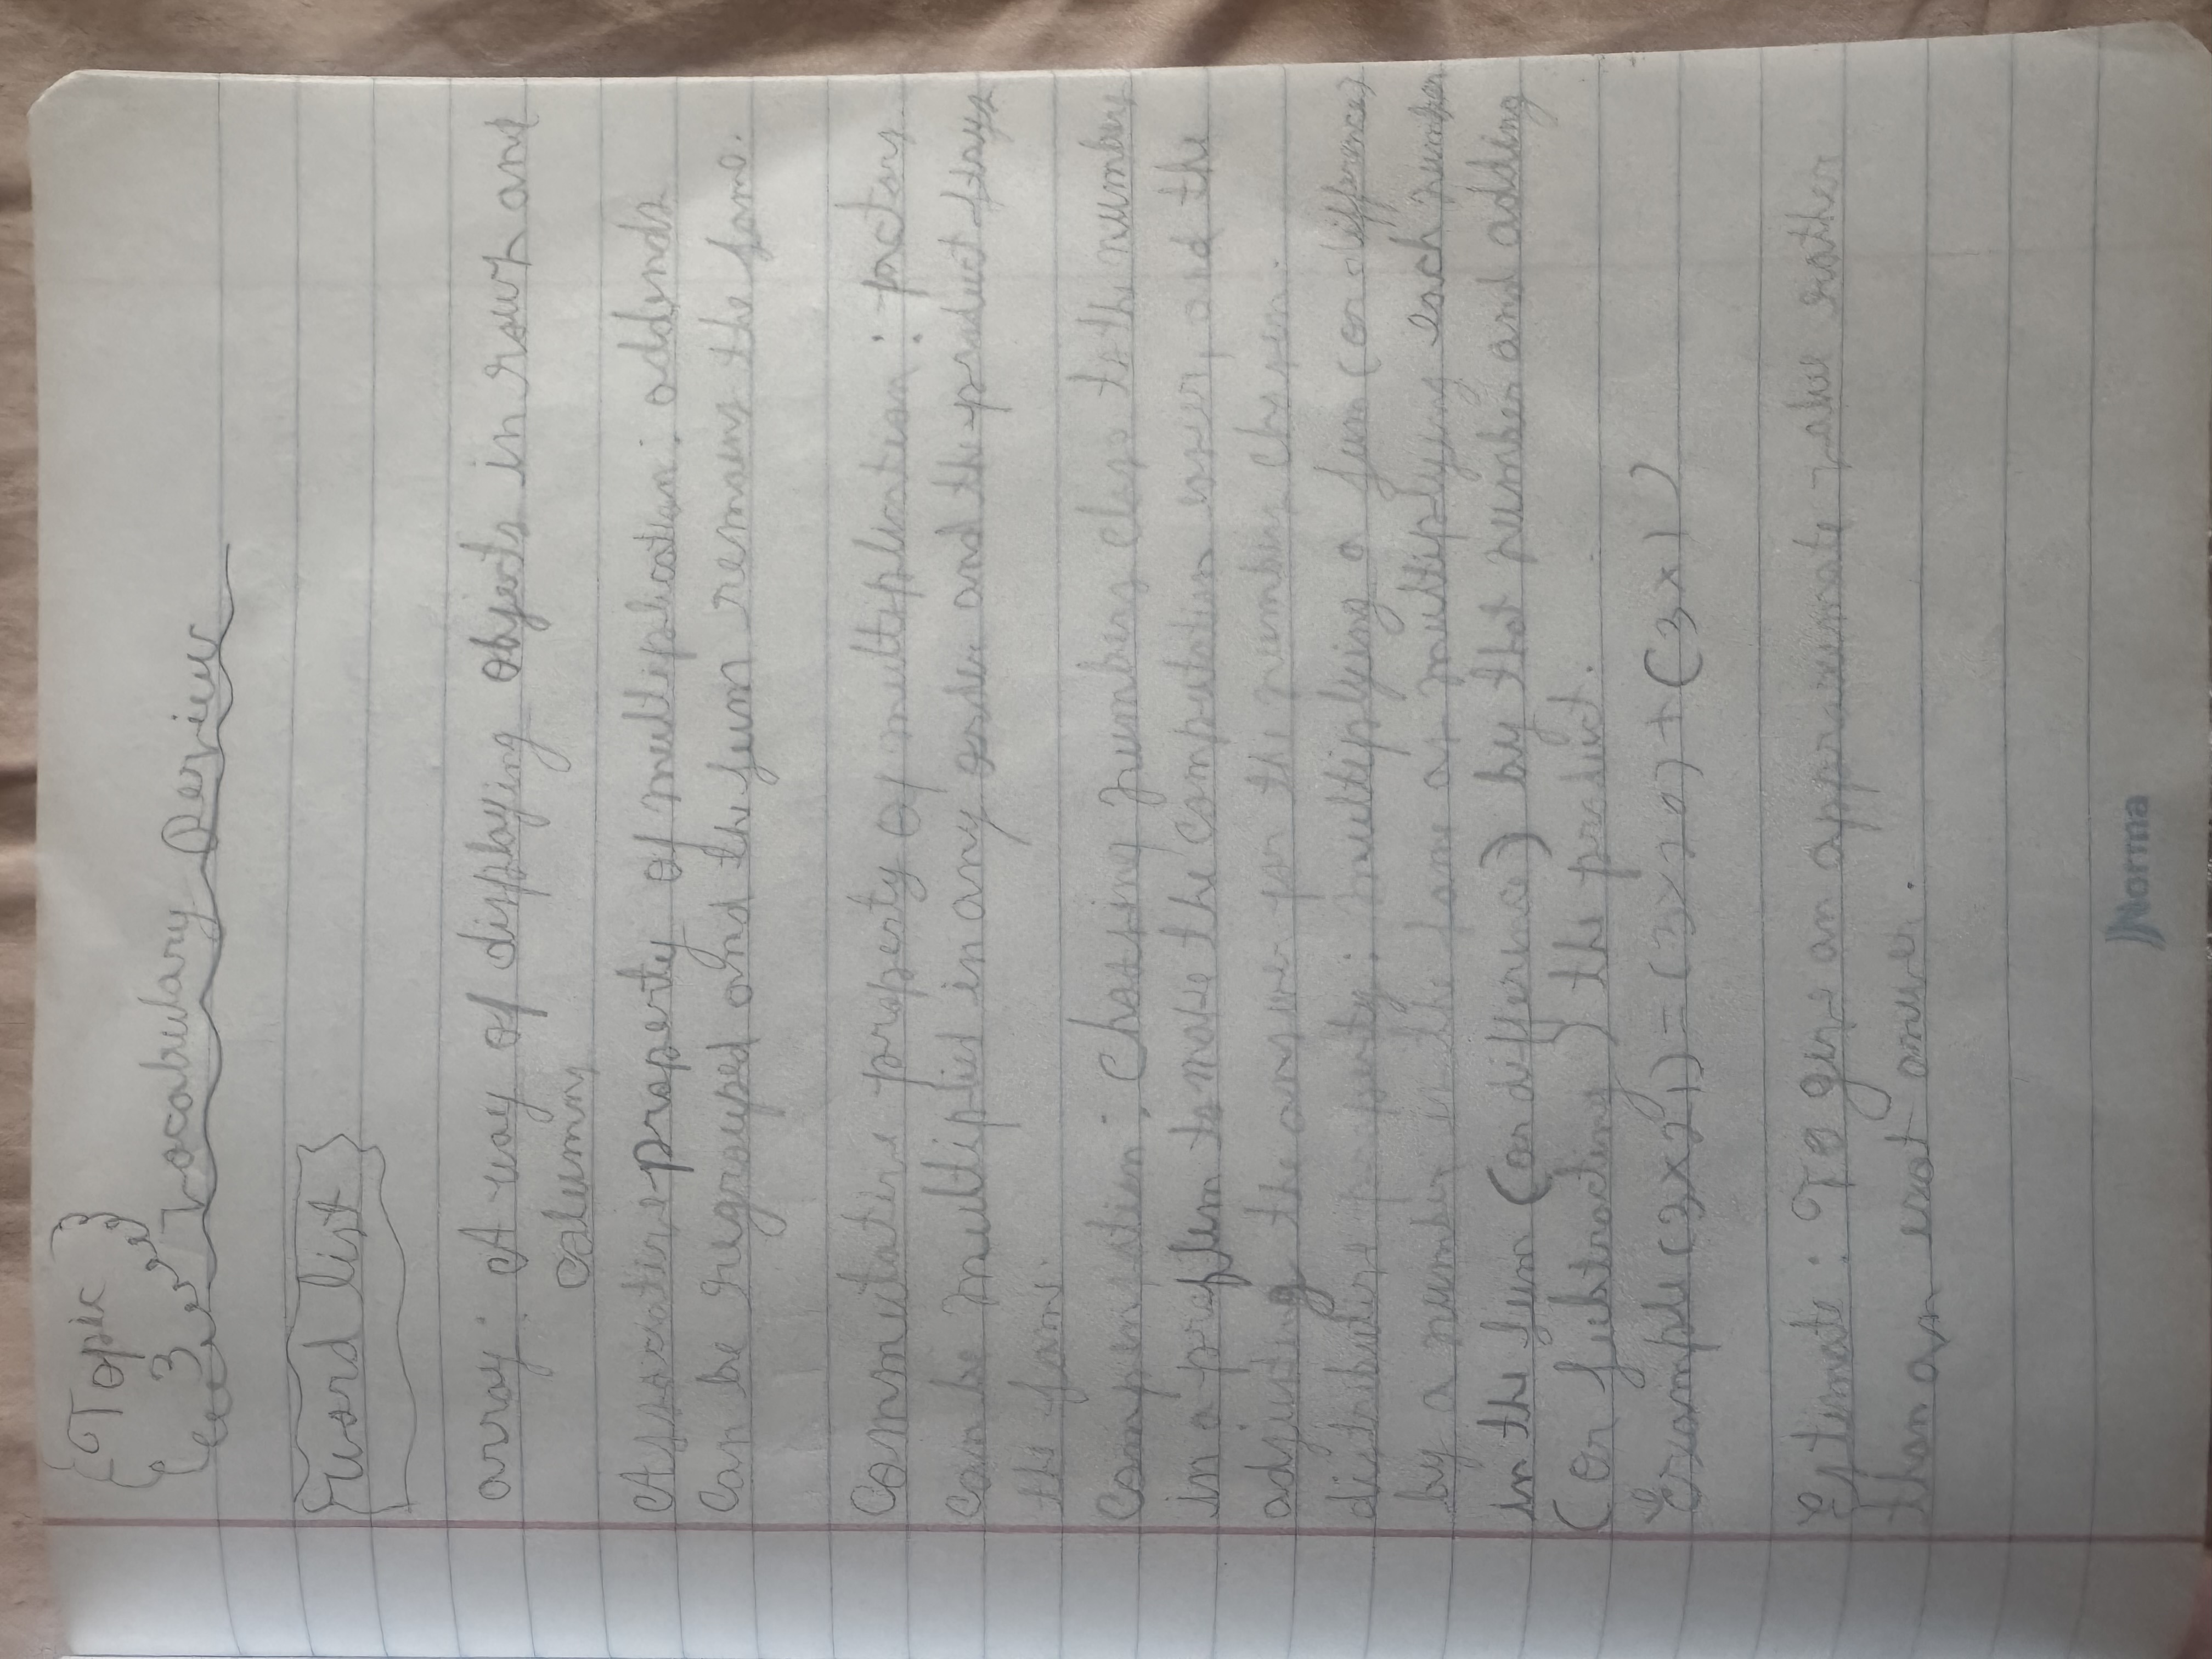 {Topic}
{3} Vocabulary Review
{Word list}
array: A way of displaying objects in rows and
columns
Associative property of multiplication: addends
can be regrouped and the sum remains the same.
Commutative property of multiplication: factors
can be multiplied in any order and the product stays
the same.
Compensation: Choosing numbers close to the numbers
in a problem to make the computation easier, and the
adjusting the answer for the numbers chosen.
distributive property: multiplying a sum (or difference)
by a number is the same as multiplying each number
in the sum (or difference) by that number and adding
(or subtracting) the product.
Example (3x21) = (3x20) + (3x1)
Estimate: To give an approximate value rather
than an exact answer.
Norma